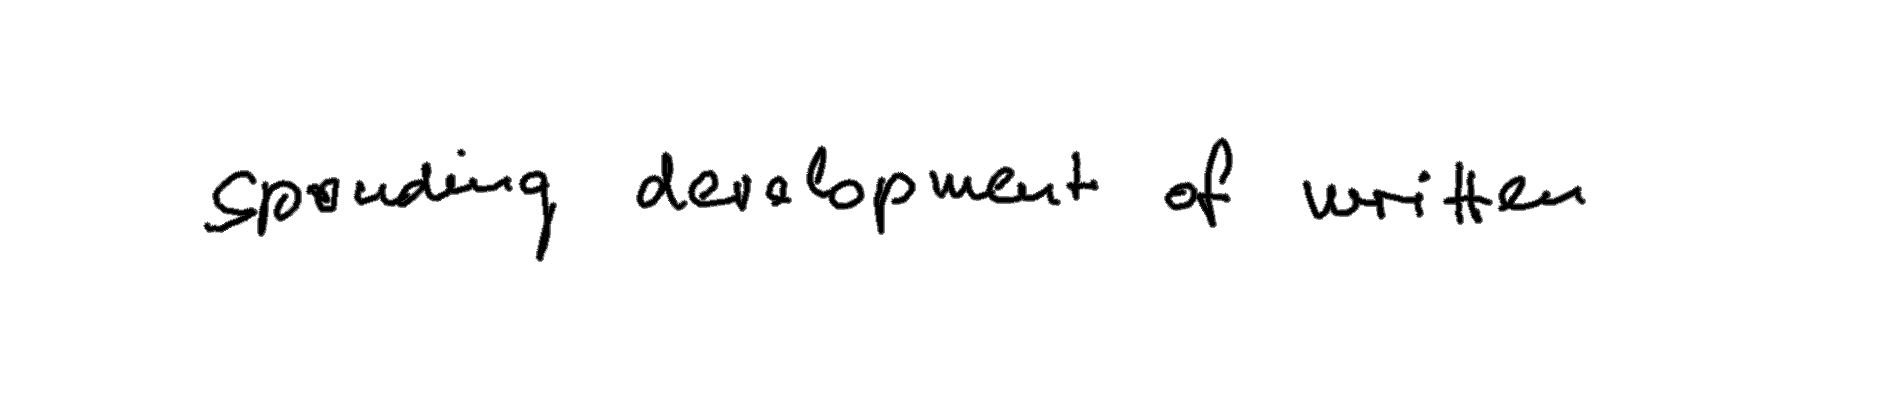 sponding development of written